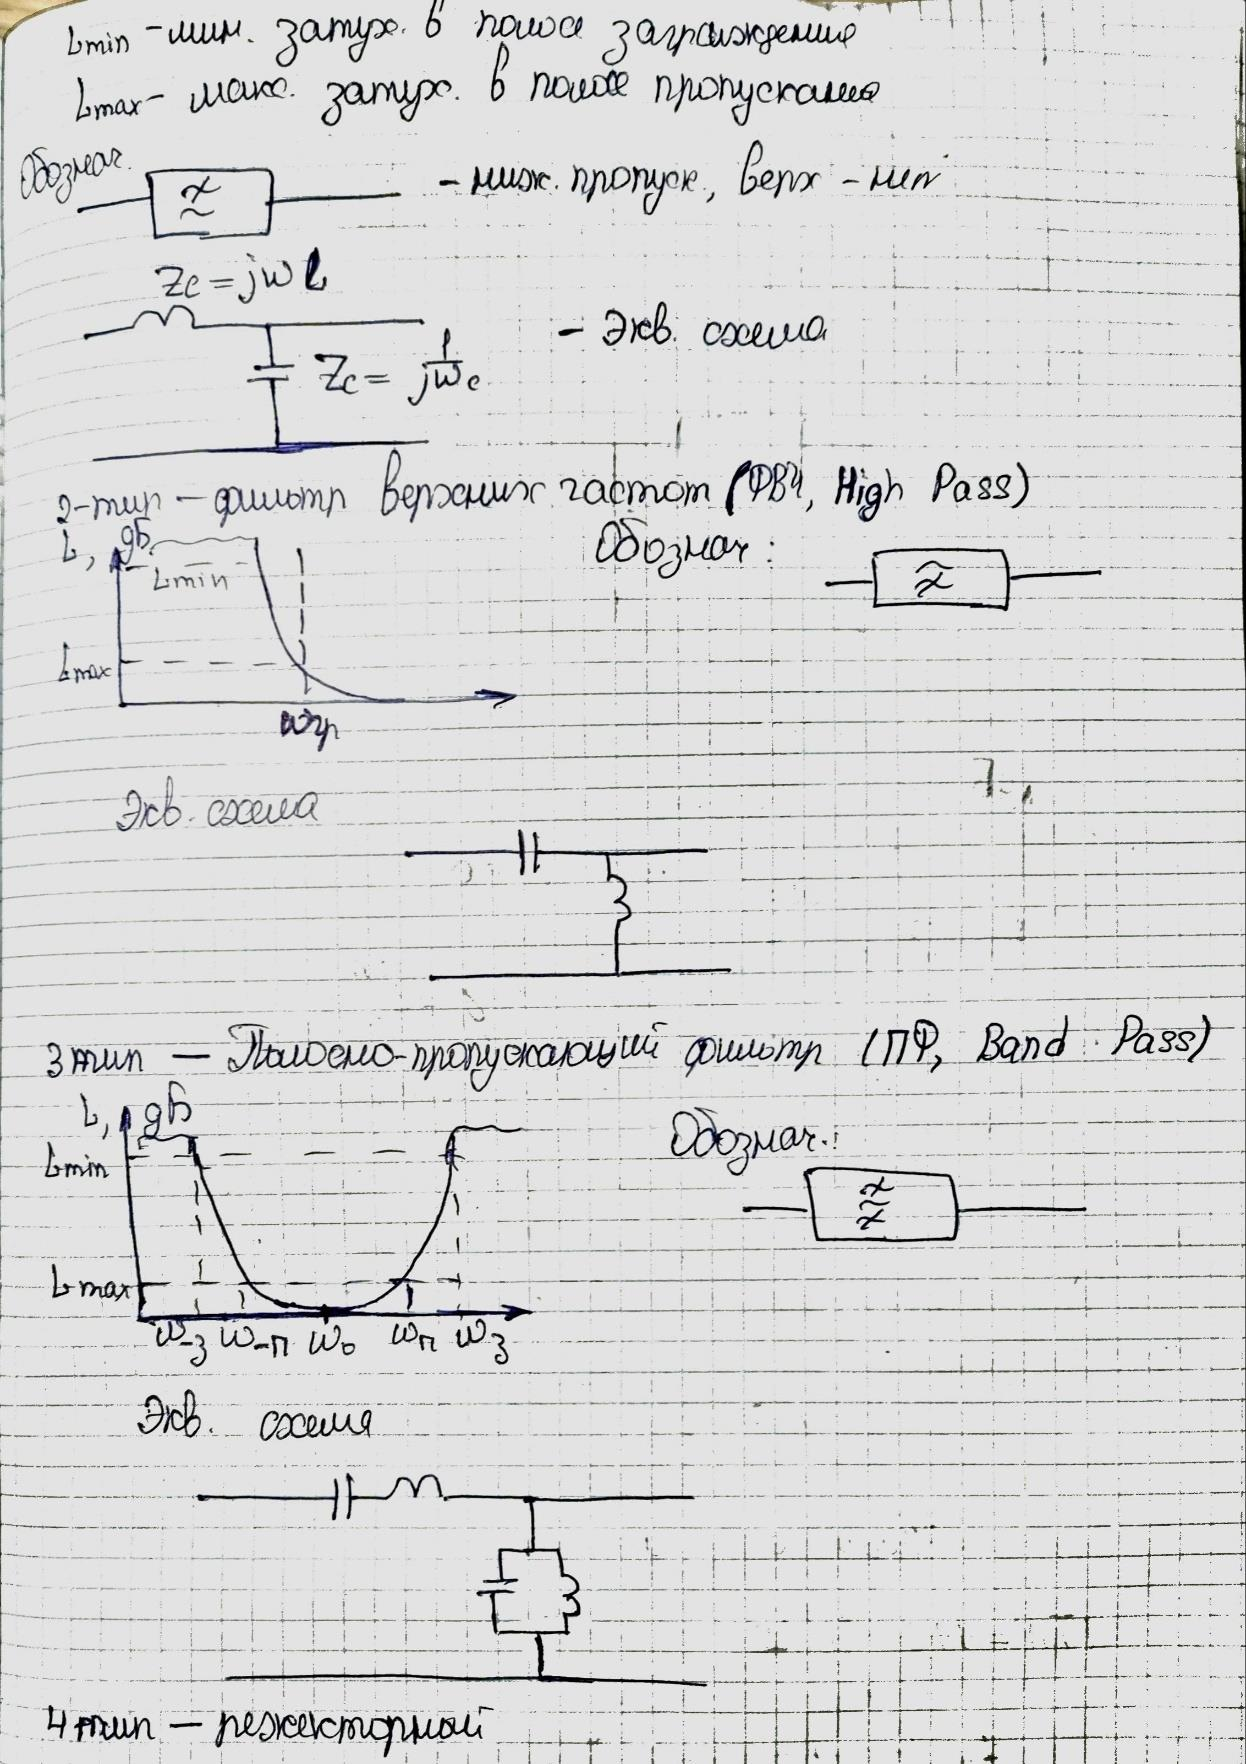 Lmin - мин. затух. в полосе заграждения
Lmax - макс. затух. в полосе пропускания
Обознач.
- ниж. пропуск., верх - нет
Zc = jωL
- Экв. схема
Zc = 1/jωc
2-тип - фильтр верхних частот (ФВЧ, High Pass)
L, дБ
Обознач:
Lmin
Lmax
ωгр
Экв. схема
3 тип - Полосно-пропускающий фильтр (ПФ, Band Pass)
L, дБ
Обознач.:
Lmin
Lmax
ω-з ω-п ω0 ωп ωз
Экв. схема
4 тип - режекторный